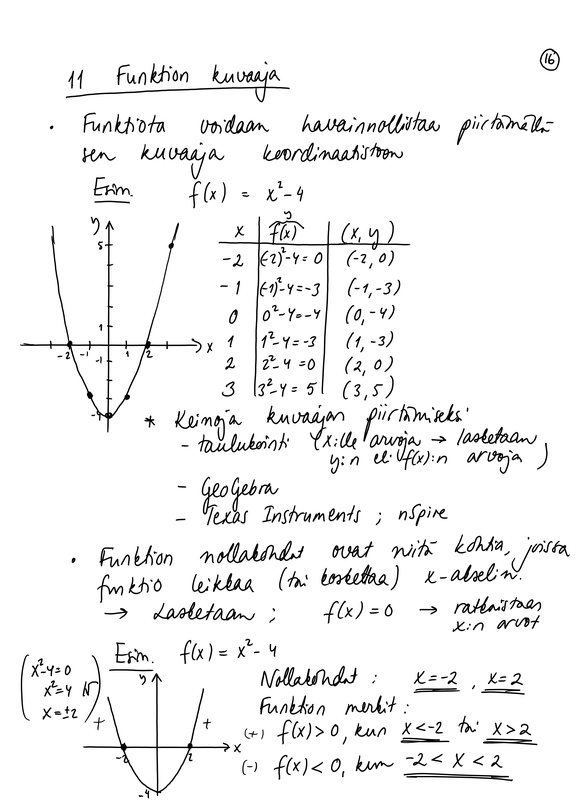 16
11 Funktion kuvaaja
• Funktiota voidaan havainnollistaa piirtämällä
sen kuvaaja koordinaatistoon
Esim. f(x) = x²-4
y
5
1
-2 -1 2 x
-1
-4
y
x f(x) (x, y)
-2 (-2)²-4 = 0 (-2, 0)
-1 (-1)²-4 = -3 (-1, -3)
0 0²-4 = -4 (0, -4)
1 1²-4 = -3 (1, -3)
2 2²-4 = 0 (2, 0)
3 3²-4 = 5 (3, 5)
* Keinoja kuvaajan piirtämiseksi:
- taulukointi (x:lle arvoja → lasketaan
y:n eli f(x):n arvoja)
- GeoGebra
- Texas Instruments ; nspire
• Funktion nollakohdat ovat niitä kohtia, joissa
funktio leikkaa (tai koskettaa) x-akselin.
→ Lasketaan ; f(x) = 0 → ratkaistaan
x:n arvot
Esim. f(x) = x²-4
(x²-4=0
x²=4
x=±2)
y
+ +
-2 2 x
-4
Nollakohdat : x=-2 , x=2
Funktion merkit :
(+) f(x)>0, kun x<-2 tai x>2
(-) f(x)<0, kun -2 < x < 2